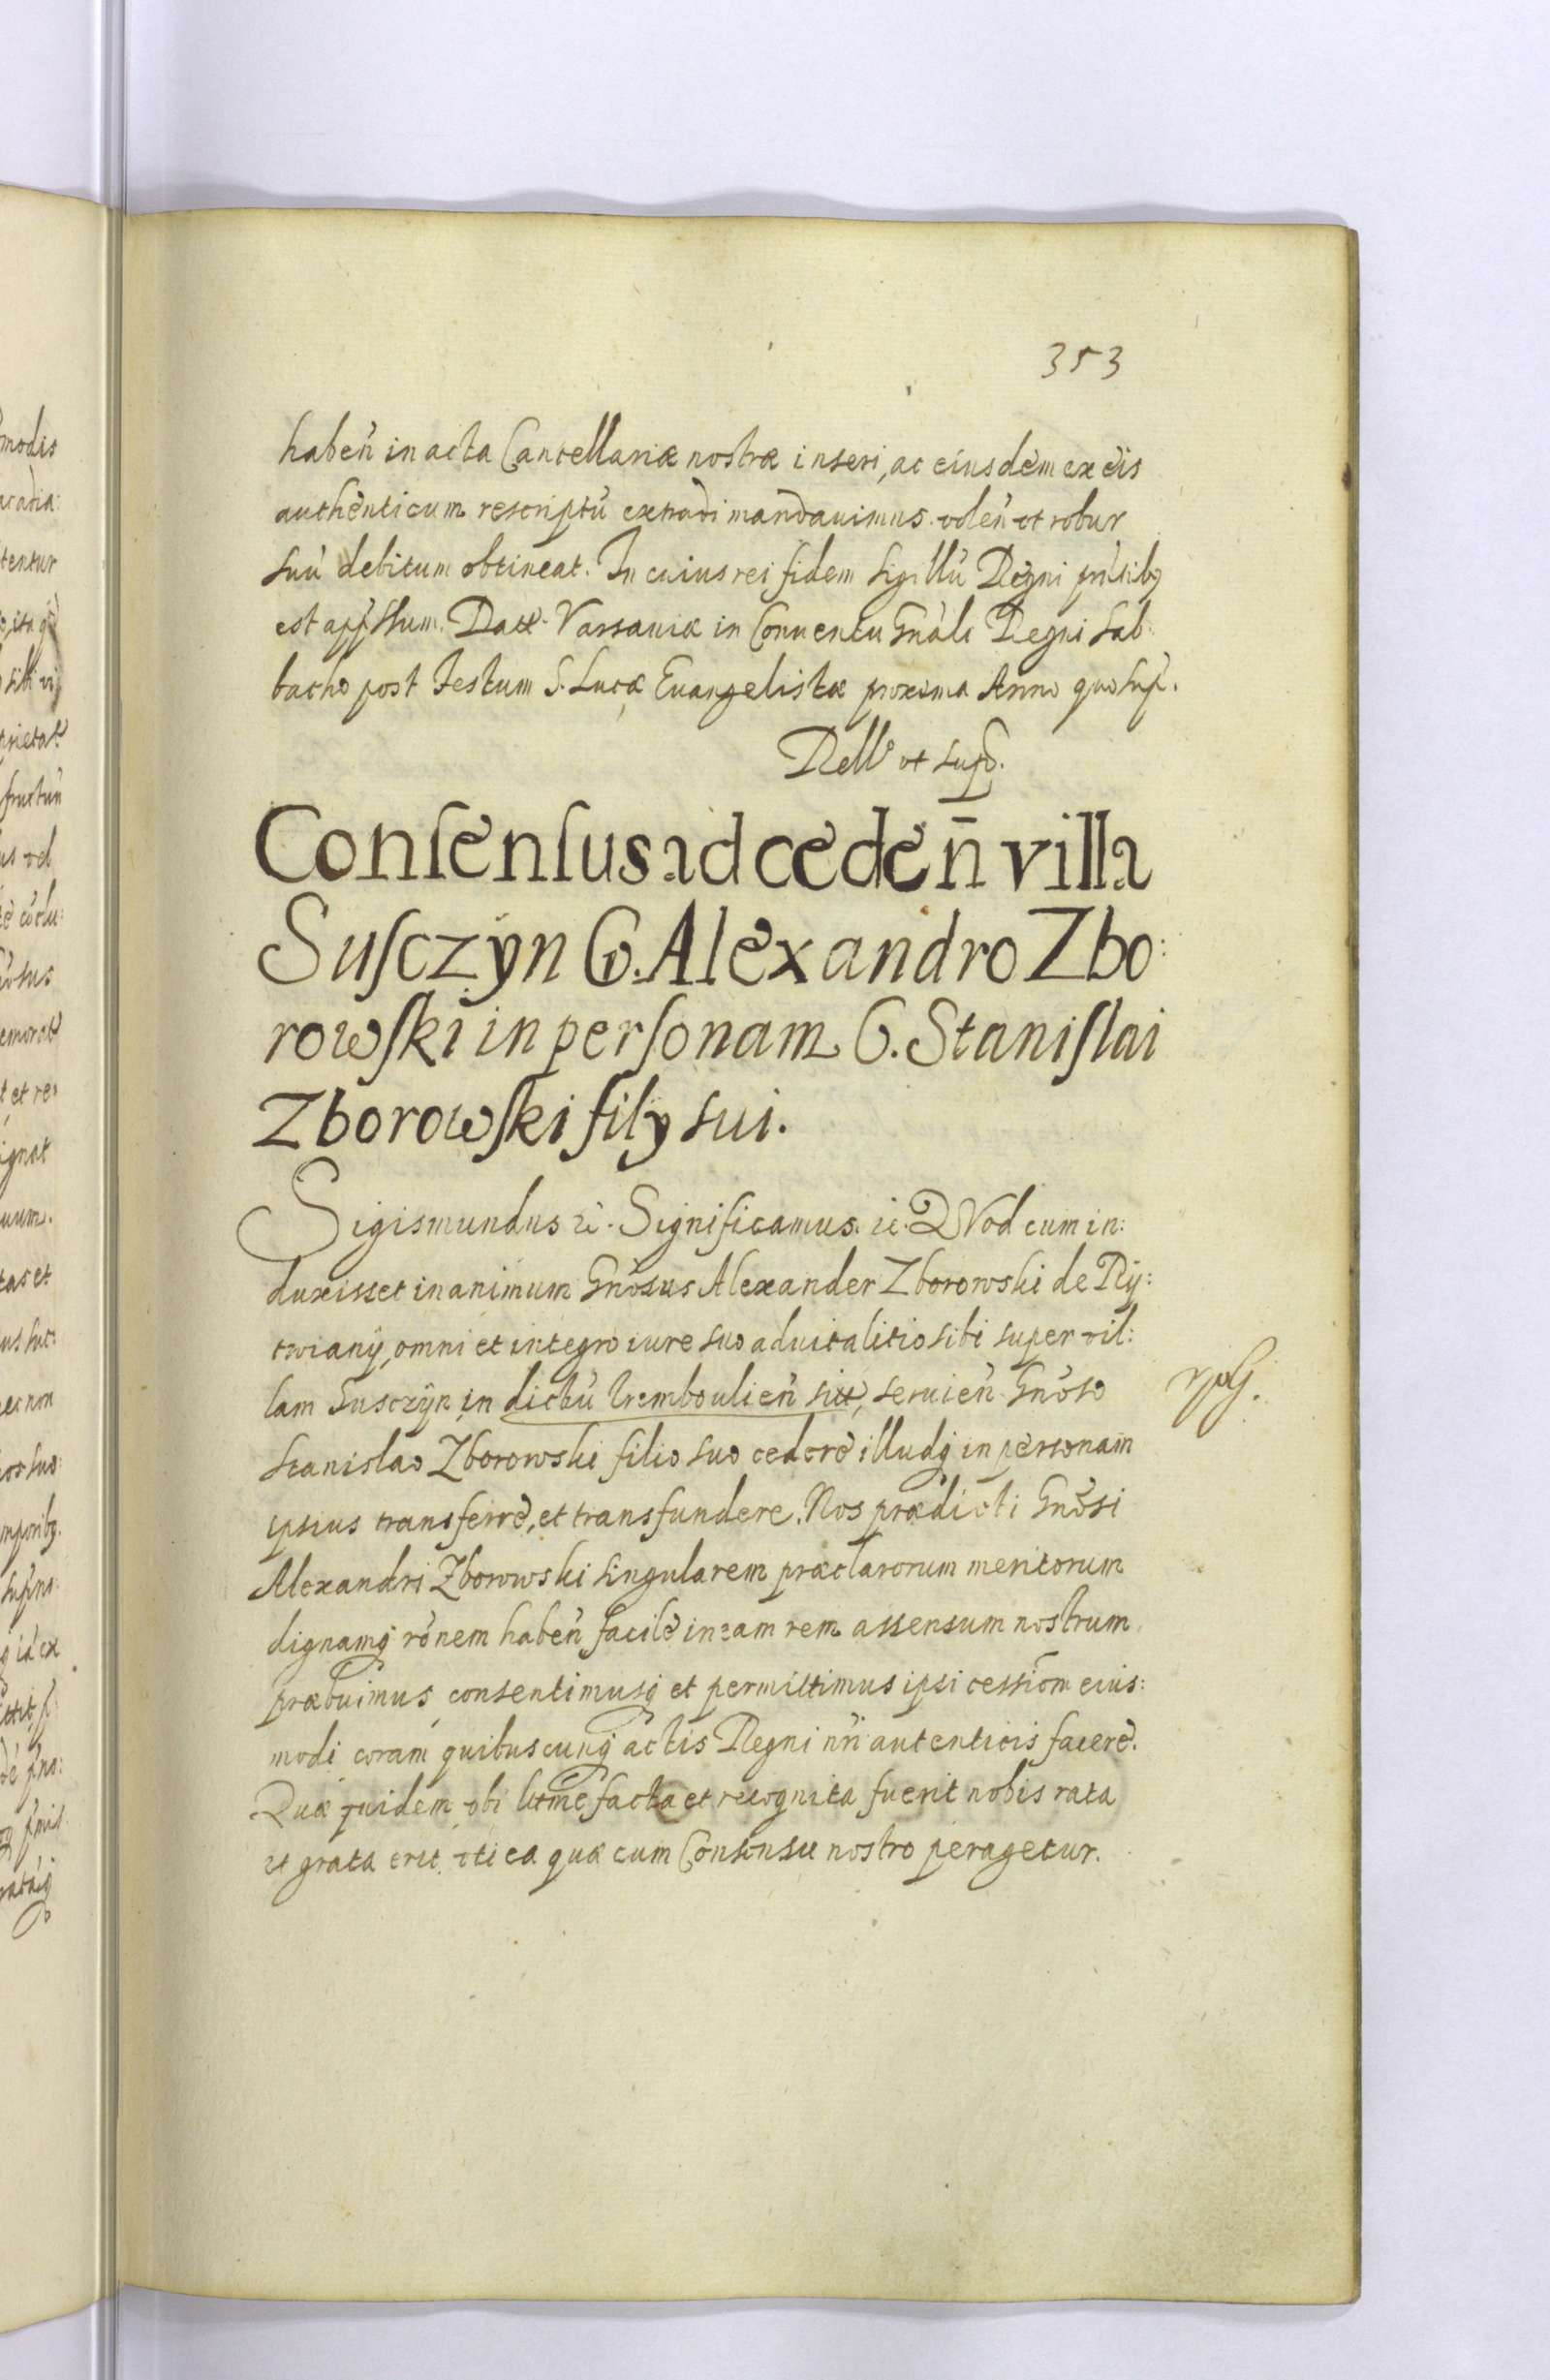 353
habeñ in acta Cancellariæ nostræ inseri, ac eiusdem ex eis
authenticum rescriptũ extradi mandauimus. vtleñ et robur
suũ debitum obtineat. In cuius rei fidem sigillũ Regni pñtibq
est appssum. Datt. Varsauiæ in Conuentu Gnãli Regni Sab:
batho post Festum S. Lucæ Euangelistæ proxima Anno quo sup.
Rello vt supd.
Conſenſus ad cedeñ villa
Suſczÿn G. Alexandro Zbo:
rowſki in perſonam G. Staniſlai
Zborowſki filÿ sui.
Sigismundus ic. Significamus. ic. QVod cum in:
duxisset in animum Gnõsus Alexander Zborowski de Rÿ:
twianÿ, omni et integro iure suo aduitalitio sibi super vil:
lam Susczÿn in dictũ Tremboulieñ sitt, seruieñ Gnõso
Stanislao Zborowski filio suo cedere illudq in personam
ipsius transferre, et transfundere. Nos prædicti Gnõsi
Alexandri Zborowski singularem præclarorum meritorum
dignamq rõnem habeñ facile in eam rem assensum nostrum
præbuimus, consentimusq et permittimus ipsi cessiõm eius:
modi coram quibuscunq actis Regni nri autenticis facere.
Quæ quidem vbi littme facta et recognita fuerit nobis rata
et grata erit vti ea quæ cum Consensu nostro peragetur.